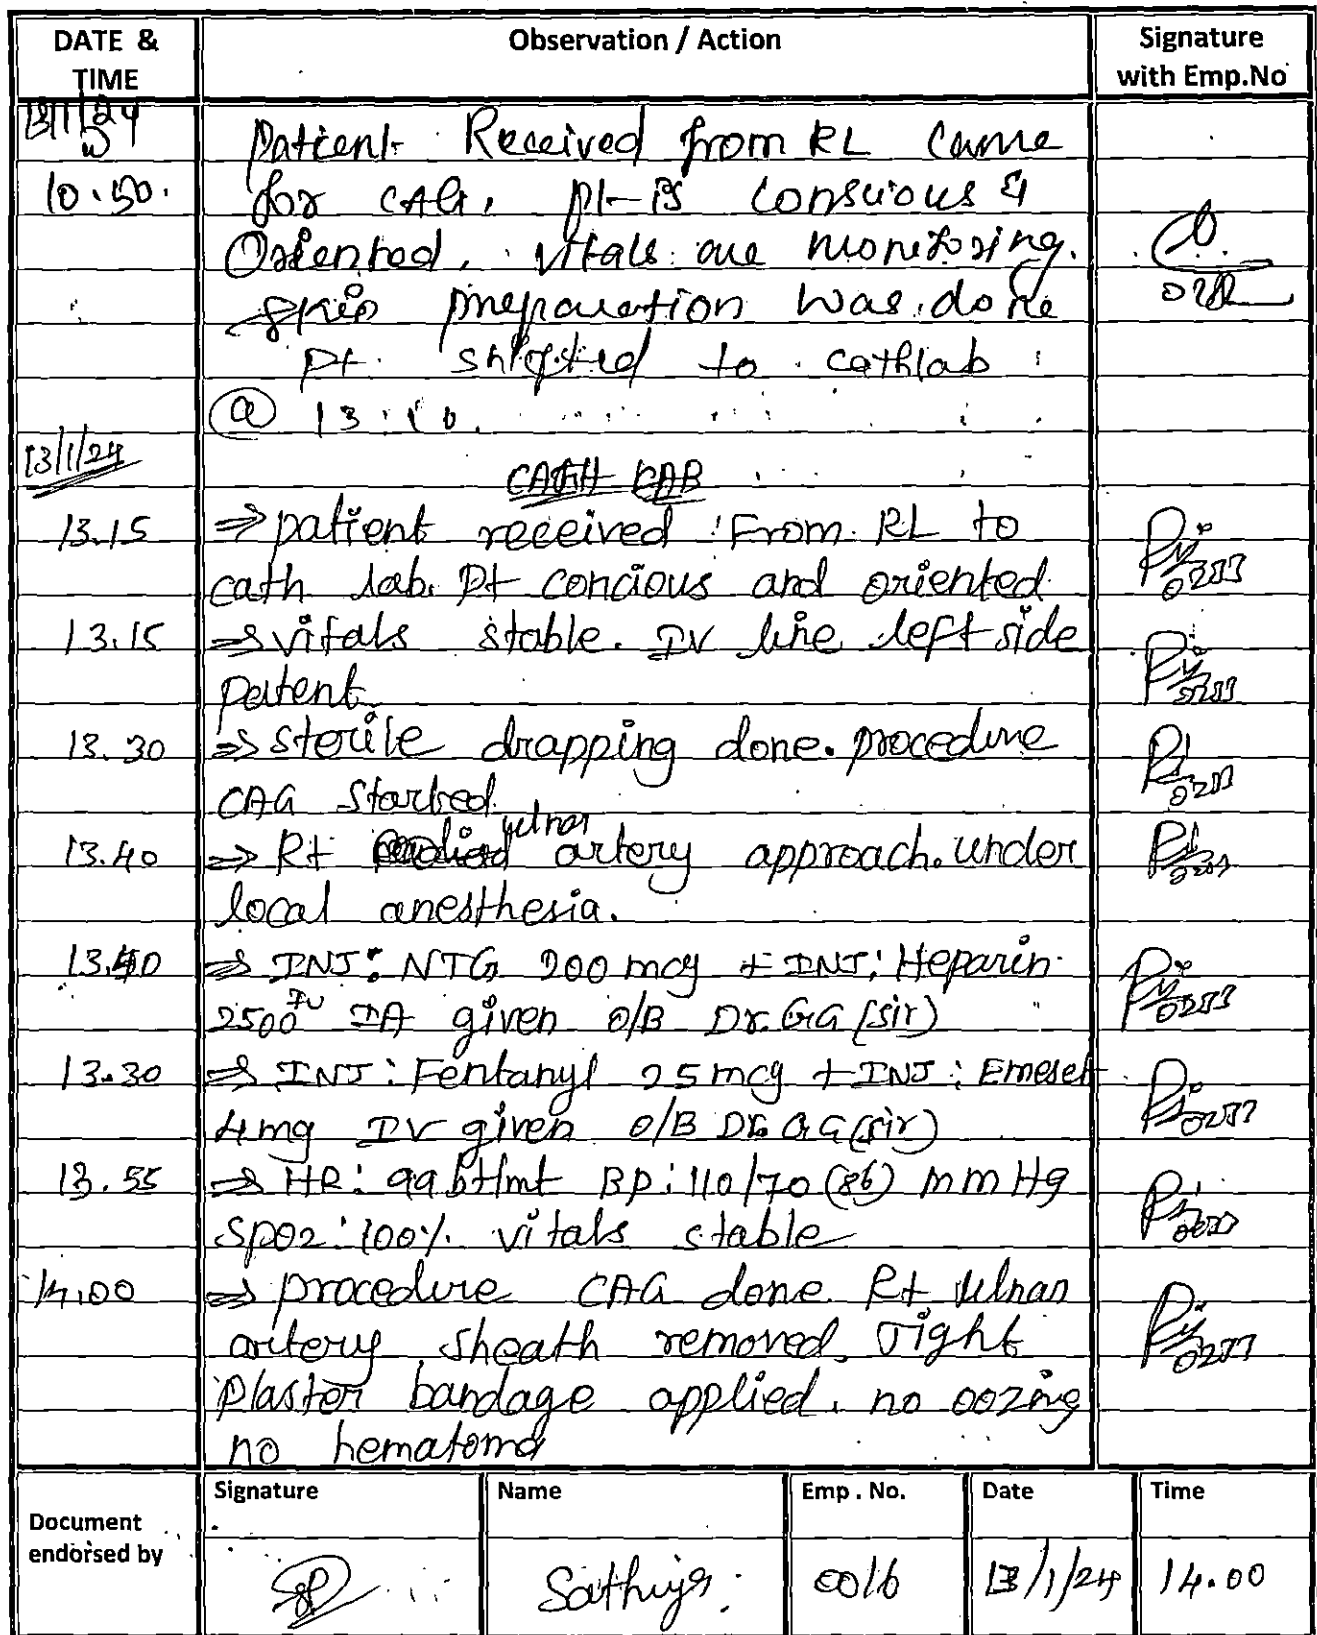 DATE & TIME
Observation / Action
Signature with Emp.No
13/1/24
10.50.
Patient Received from RL Came
for CAG, pt is Conscious &
Oriented. vitals are monitoring.
skin preparation was done
pt. shifted to cathlab
@ 13:10.
13/1/24
CATH LAB
13.15 ⇒ patient received From RL to
cath lab. Pt concious and oriented
13.15 ⇒ vitals stable. IV line left side
patent.
13.30 ⇒ sterile drapping done. procedure
CAG Started.
13.40 ⇒ Rt ulnar artery approach. under
local anesthesia.
13.40 ⇒ INJ: NTG 200 mcg + INJ: Heparin
2500 IU IA given O/B Dr. GG (sir)
13.30 ⇒ INJ: Fentanyl 25mcg + INJ: Emeset
4mg IV given O/B Dr. GG (sir)
13.55 ⇒ HR: 99bt/mt BP: 110/70 (86) mmHg
Spo2: 100%. vitals stable
14.00 ⇒ procedure CAG done Rt ulnar
artery sheath removed. Tight
plaster bandage applied. no oozing
no hematoma
Document endorsed by
Signature Name Emp . No. Date Time
Sathiya. 0016 13/1/24 14.00